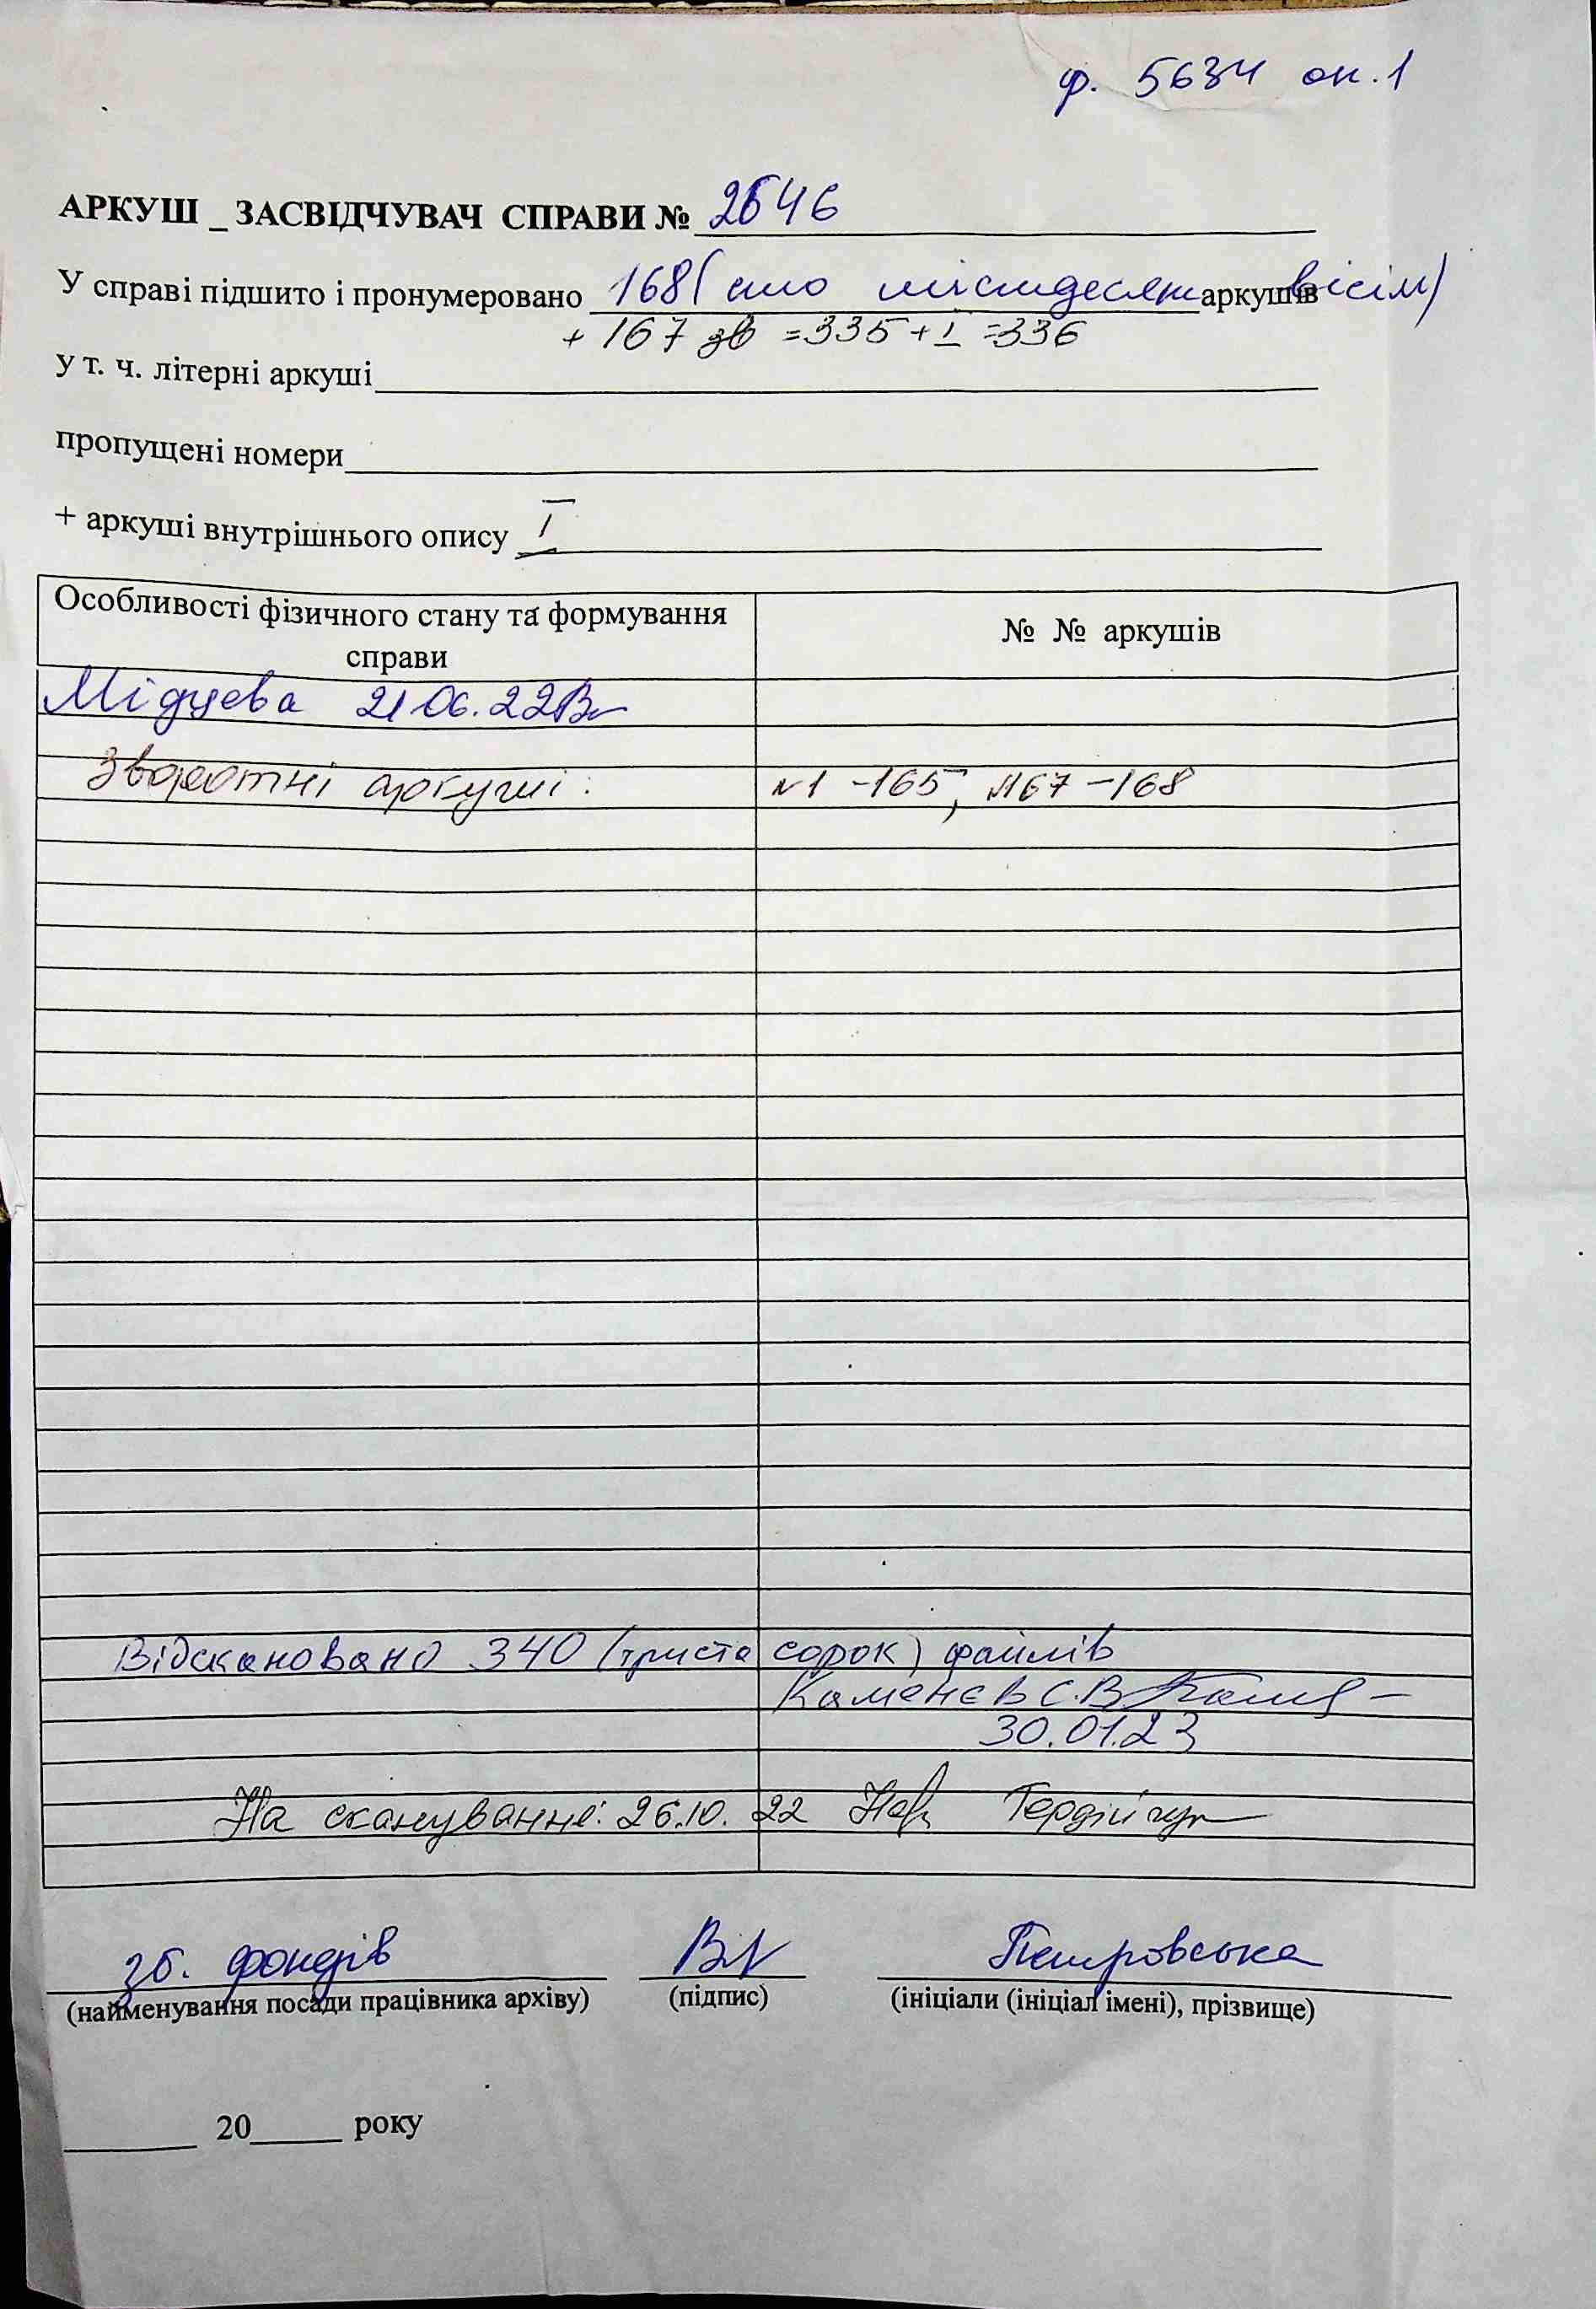 ф. 5634 оп. 1
АРКУШ _ ЗАСВІДЧУВАЧ СПРАВИ № 2646
У справі підшито і пронумеровано 168 (сто шістдесят вісім) аркушів
+ 167 зв = 335 + I = 336
у т. ч. літерні аркуші
пропущені номери
+ аркуші внутрішнього опису I
Особливості фізичного стану та формування справи
№ № аркушів
21.06.22
Зворотні аркуші: №1 - 165, №167 - 168
Відскановано 340 (триста сорок) файлів
Каменєв С.В.
30.01.23
На сканування: 26.10.22
зб. фондів Петровська
(найменування посади працівника архіву) (підпис) (ініціали (ініціал імені), прізвище)
20 року